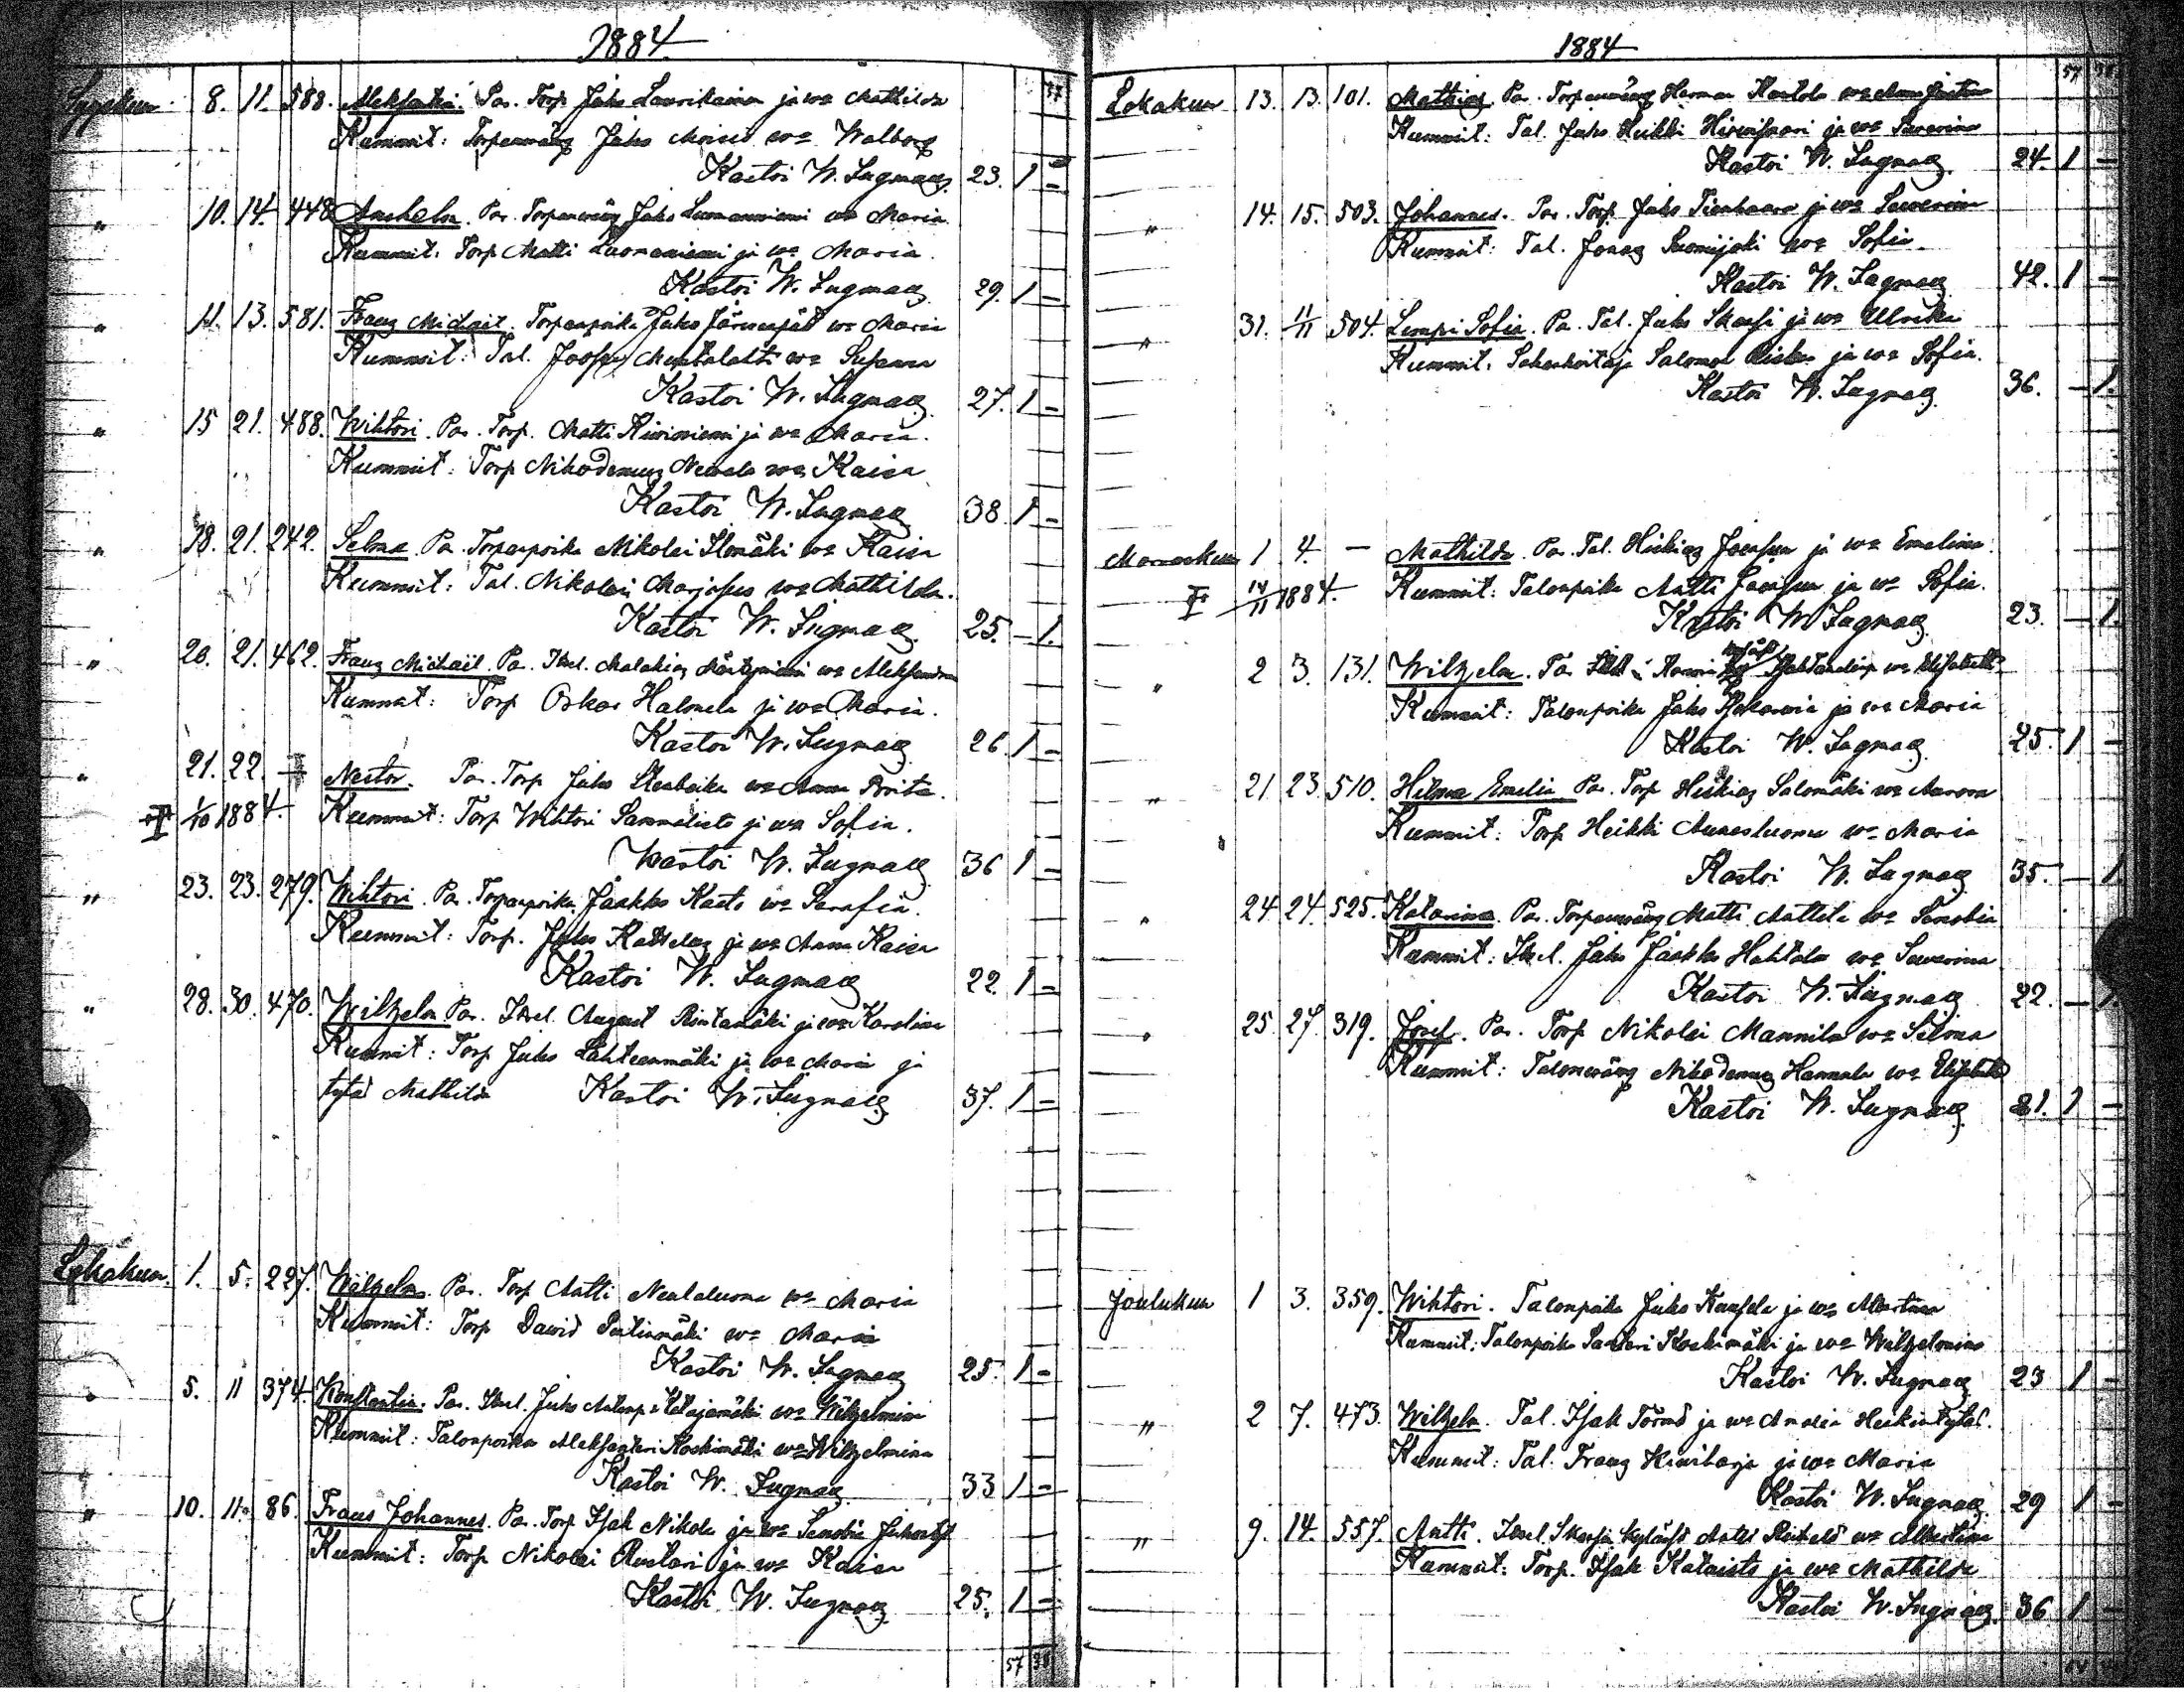 1884
Syyskuu 8. 11. 588. Aleksanteri. Pa. Torp Juho Laurikainen ja wo Mathilda
Kummit: Torpanwäng Juho Moisio wo Walborg
Kastoi W. Lugnacz 23. 1 -
" 10. 14. 448 Anshelm. Pa. Torpanwäng Juho Luomanniemi wo Maria
Kummit: Torp Matti Luomaniemi ja wo Maria.
Kastoi W. Lugnacz 29. 1 -
" 11. 13. 581. Franz Michaël. Torpanpoika Juho Järwenpää wo Maria
Kummit: Tal. Mustalahti wo Susanna
Kastoi W. Lugnacz 27. 1 -
" 15 21. 488. Wihtori. Pa. Torp. Matti Kiwiniemi ja wo Maria.
Kummit: Torp Nikodemus Newala wo Kaisa
Kastoi W. Lugnacz 38 1 -
" 18. 21. 242. Selma Pa. Torpanpoika Nikolai Ilomäki wo Kaisa
Kummit: Tal. Nikolai Marjasuo wo Mathilda.
Kastoi W. Lugnacz 25. - 1.
" 20. 21. 462. Franz Michaël Pa. Itsel. Malakias wo Aleksandra
Kummit: Torp Oskar Halmela ja wo Maria.
Kastoi W. Lugnacz 26. 1 -
" 21. 22. Nestor. Pa. Torp Juho wo Anna Brita.
1/10 1884. Kummit: Torp Wihtori Sammalisto ja wo Sofia.
Kastoi W. Lugnacz 36 1 -
" 23. 23. 279. Wihtori. Pa. Torpanpoika Jaakko Kasto wo Serafia.
Kummit: Torp. Juho Kattelus ja wo Anna Kaisa
Kastoi W. Lugnacz 22. 1 -
" 28. 30. 470. Wilhelm Pa. Itsel. August Rintamäki ja wo Karolina
Kummit: Torp Juho Lähteenmäki ja wo Maria ja
tytär Mathilda Kastoi W. Lugnacz 37. 1 -
Lokakuu. 1. 5. 227. Wilhelm. Pa. Torp Antti Newalaluoma wo Maria
Kummit: Torp Dawid wo Maria
Kastoi W. Lugnacz 25. 1 -
" 5. 11 374. Konstantin. Pa. Itsel. Juho Katajamäki wo Wilhelmina
Kummit: Talonpoika Aleksanteri Koskimäki wo Wilhelmina
Kastoi W. Lugnacz 33 1 -
" 10. 11. 86. Frans Johannes. Pa. Torp Isak Nikola ja wo Senobia Juhontyt
Kummit: Torp Nikolai Rustari ja wo Kaisa
Kastoi W. Lugnacz 25. 1 -
57 38
1884
57 38
Lokakuu 13. 13. 101. Mathias Pa. Torpanwäng Herman Kantola wo
Kummit: Tal. Juho Heikki Hirwisaari ja wo Sewerina
Kastoi W. Lugnacz 24. 1 -
" 14. 15. 503. Johannes. Pa. Torp. Juho Tienhaara ja wo Sewerina
Kummit: Tal. Jonas Suomijoki wo Sofia.
Kastoi W. Lugnacz 42. 1 -
" 31. 11/11 504. Lempi Sofia. Pa. Tal. Juho Skarsi ja wo Ulrika
Kummit: Sahanhoitaja Salomon Risku ja wo Sofia.
Kastoi W. Lugnacz 36. - 1.
Marraskuu 1 4. - Mathilda Pa. Tal. Hiskias Joensuu ja wo Emelina.
14/11 1884. Kummit: Talonpoika Antti Joensuu ja wo Sofia.
Kastoi W Lugnacz 23. - 1.
" 2 3. 131. Wilhelm. Pa. wo Elisabetti
Kummit: Talonpoika Juho ja wo Maria
Kastoi W. Lugnacz 25. 1 -
" 21 23. 510. Hilma Emelia Pa. Torp Hiskias Salomäki wo Aurora
Kummit: Torp Heikki Aunesluoma wo Maria
Kastoi W. Lugnacz 35. - 1
" 24 24. 525. Katarina. Pa. Torpanwäng Matti Anttila wo Senobia
Kummit: Itsel. Juho Jaakko Hahtola wo Sewerina
Kastoi W. Lugnacz 22. - 1.
" 25. 27. 319. Josef. Pa. Torp Nikolai Mannila wo Selma
Kummit: Talonwäng Nikodemus Hannula wo Elisabet
Kastoi W. Lugnacz 21. 1 -
Joulukuu 1 3. 359. Wihtori. Talonpoika Juho ja wo Albertina
Kummit: Talonpoika Santeri Koskimäki ja wo Wilhelmina
Kastoi W. Lugnacz 23 1 -
" 2 7. 473. Wilhelm. Tal. Isak Törmä ja wo Amalia Heikintytär.
Kummit: Tal. Franz Kiwiharju ja wo Maria
Kastoi W. Lugnacz 29 1 -
" 9. 14. 557. Antti. Itsel. Skarsin kylässä Antti wo Albertina
Kummit: Torp. Isak Kataisto ja wo Mathilda
Kastoi W. Lugnacz. 36 1 -